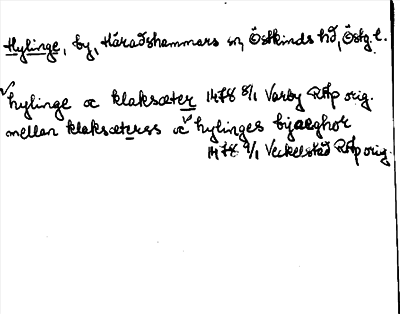 Hylinge, by, Häradshammars sn, Östkinds hd, Östg. l.
hylinge oc klaksæter 1478 8/1 Varby RAp orig.
mellan klaksæterss oc hylinges byæghor
1478 9/1 Veckelstad RAp orig.